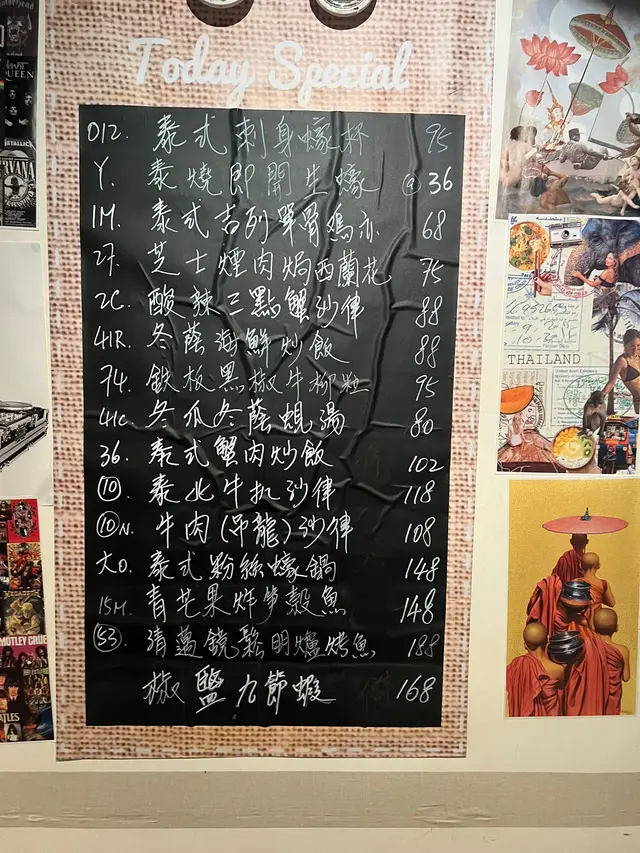 Today Special
012. 泰式刺身蠔杯 95
Y. 泰燒即開生蠔 @36
1M. 泰式吉列單骨鳮亦 68
27. 芝士煙肉焗西蘭花 75
2C. 酸辣三點蟹沙律 88
41R. 冬蔭海鮮炒飯 88
74. 鉄板黑椒牛柳粒 95
41C. 冬瓜冬蔭蜆湯 80
36. 泰式蟹肉炒飯 102
⑩ 泰北牛扒沙律 118
⑩N. 牛肉(吊龍)沙律 108
大0. 泰式粉絲蠔鍋 148
15M. 青芒果炸笋殼魚 148
(53). 清邁鏡鬆明爐烤魚 188
椒盬九節蝦 168
QUEEN
METALLICA
NIRVANA
MOTLEY CRUE
THAILAND